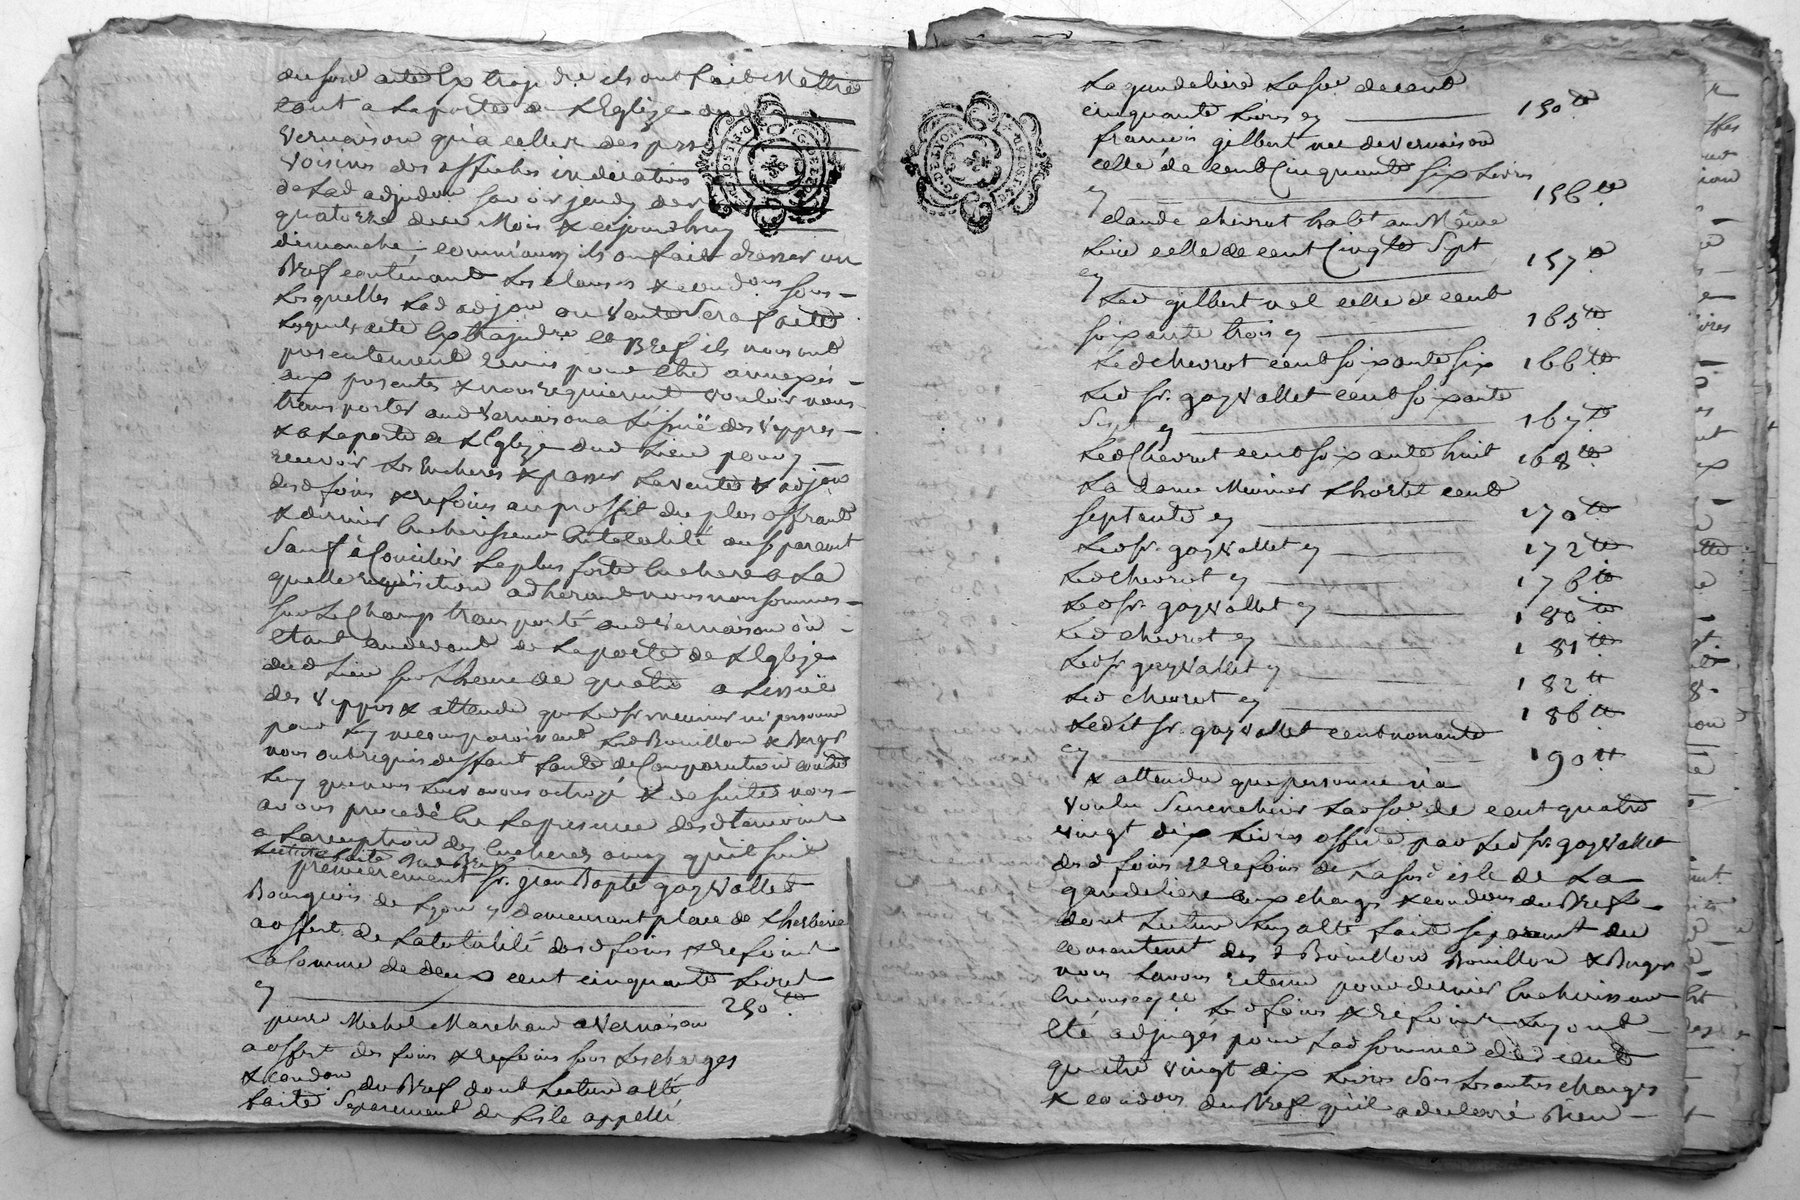 du sout acte Extrajdre ils ont fait Mettre
tant a La porte de L'Eglize dud
Vernaison qu'a celles des prs
Voisines des affiches indicatives
de Lad adjudon savoir jeudy der
quatorze de ce Mois & cejourdhuy
dimanche, comm'aussy ils ont fait dresser un
Bref contenant Les clauses & condons sous
Lesquelles Lad adjon ou Vente sera faite
Lesquels acte Extrajudre et Bref ils nous ont
presentement remis pour etre annexés
aux presentes & nous requierent vouloir nous
transporter aud Vernaison a L'issuë des Vepres
& a La porte de L'Eglize dud Lieu pour y
recevoir Les Encheres & passer La vente & adjon
desd foins & refoins au proffit du plus offrant
& dernier Encherisseur En totalité ou separemt
Sauf à Concilier La plus forte Enchere a La
quelle requisition adherant nous nous sommes
sur Le Champ transporté aud Vernaison où
etant audevant de La porte de L'Eglize
dud Lieu sur L'heure de quatre a L'essuë
des Vepres & attendu que Led sr meunier ni personne
pour Luy ne comparoissant Led Bouillon & Berger
nous ont requis deffaut faute de Comparution contre
Luy que nous Leur avons octroyé & de suite nous
avons procedé En La presence desd temoins
a La reception des Encheres ainsy qu'il suit
Lecture faite dud Bref
premierement sr. Jean Bapte gayvallet
Bourgeois de Lyon y demeurant place de L'herberie
a offert de La totalité desd foins & refoins
La somme de deux cent cinquante Livres
cy 250tt
pierre Michel Marchand a Vernaison
a offert des foins & refoins sous Les charges
& condons du Bref dont Lecture a Eté
faite Separement de L'isle appellé
La gandeliere La sme de cent
cinquante Livres cy 150tt
francois gilbert de Vernaison
celle de cent Cinquante six Livres
cy 156tt
claude chevrot habt au Même
Lieu celle de cent Cinqte Sept
cy 157tt
Led gilbert celle de cent
soixante trois cy 163tt
Led chevrot cent soixante six 166tt
Led sr. gayvallet cent soixante
Sept cy 167tt
Led Chevrot cent soixante huit 168tt
La dame Meunier cent
septante cy 170tt
Led sr. gayvallet cy 172tt
Led chevrot cy 176tt
Led sr. gayvallet cy 180tt
Led chevrot cy 181tt
Led sr gayvallet cy 182tt
Led chevrot cy 186tt
Ledit sr. gayvallet cent nonante
cy 190tt
& attendu que personne n'a
voulu Surencherir Lad sme de cent quatre
vingt dix Livres offerte par Led sr. gayvallet
desd foins et refoins de La susd isle de La
gandeliere aux charges & condons du Bref
dont Lecture Luy a Eté faite separemt du
consentemt des d Bouillon Bouillon & Berger
nous L'avons retenu pour dernier Encherisseur
En consequce Led foins & refoins Luy ont
Eté adjugés pour Lad somme de cent
quatre vingt dix Livres sous Les autres charges
& condons du Bref qu'il a declaré Bien